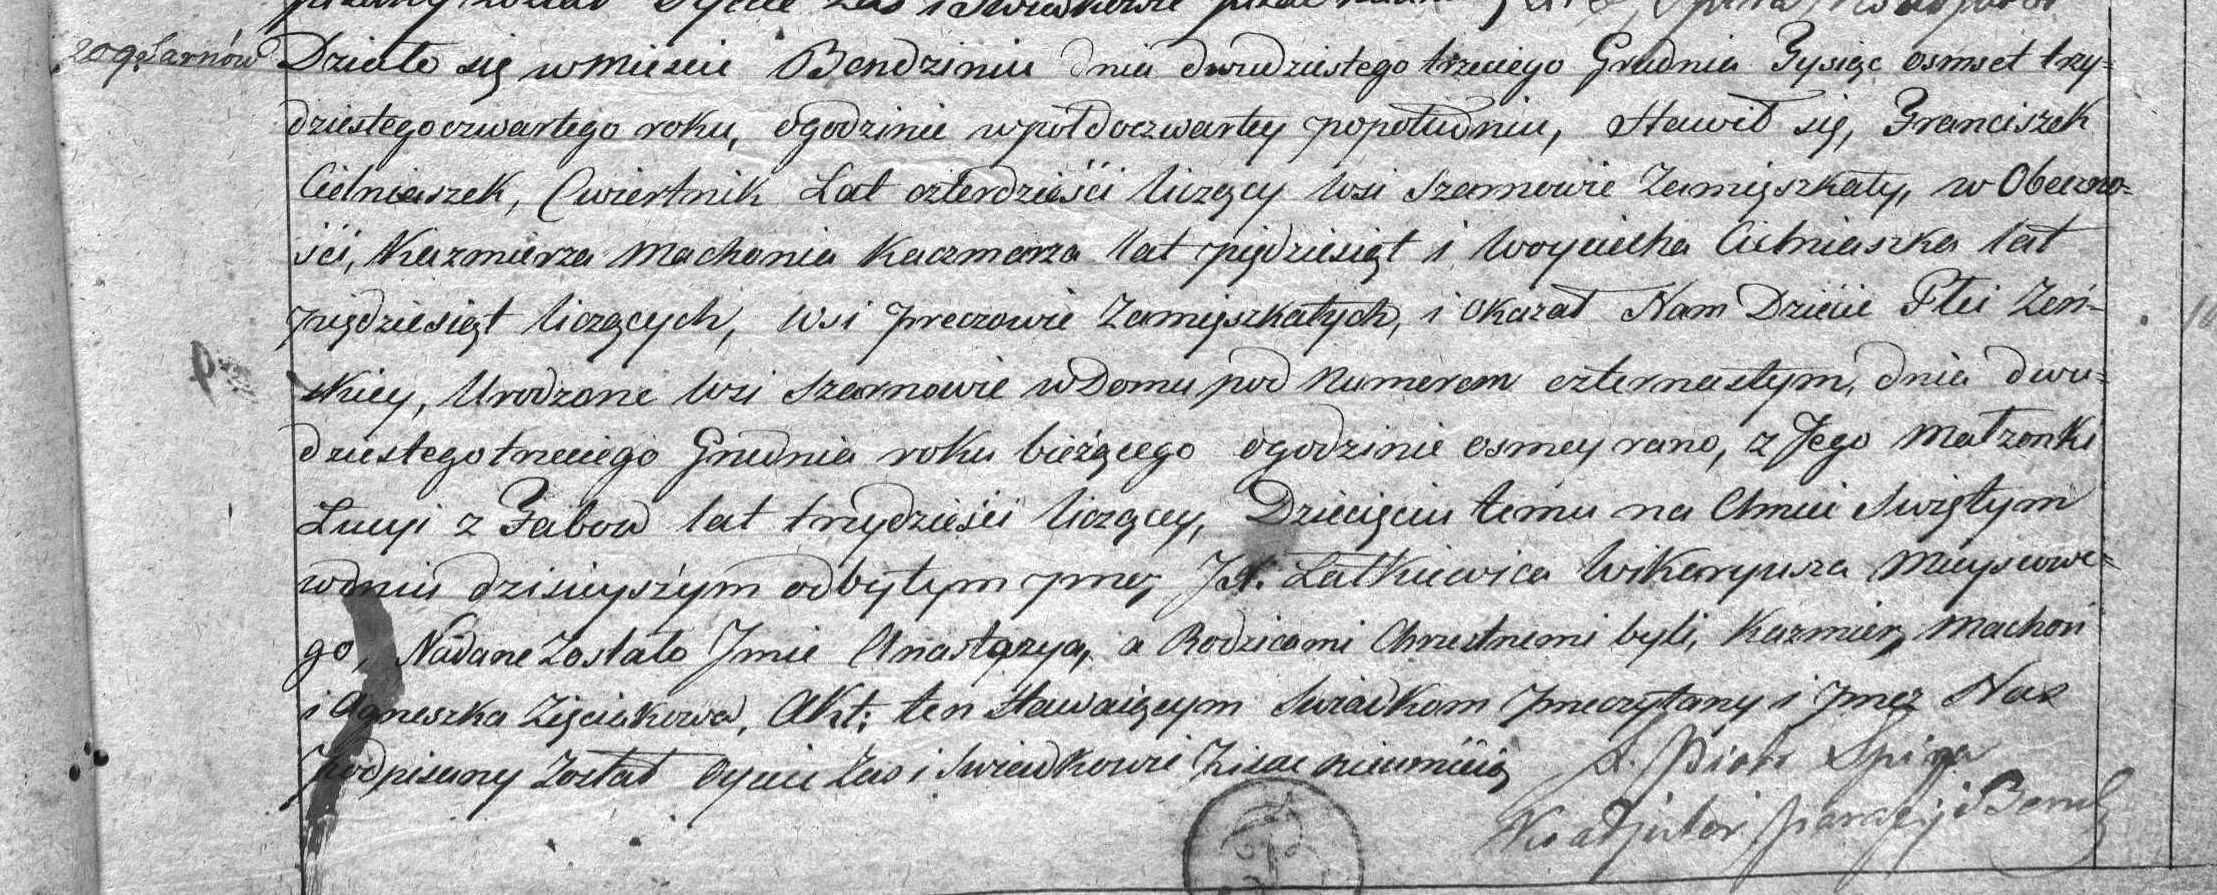 209. Sarnów Działo się w Mieście Bendziniu dnia dwudziestego trzeciego Grudnia Tysiąc osmset trzy-
dziestego czwartego roku, o godzinie wpoł do czwartey popołudniu, Stawił się, Franciszek
Cielniaszek, Cwiertnik Lat czterdzieści liczący Wsi Szarnowie Zamięszkały, w Obecno-
ści, Kazmierza Machonia Kaczmarza lat pięćdziesiąt i Woyciecha Cielniaszka lat
pięćdziesiąt liczących, Wsi Preczowie Zamięszkałych, i okazał Nam Dziecie Płci Żeń-
skiey, Urodzone Wsi Szarnowie w Domu pod Numerem czternastym, dnia dwu-
dziestego trzeciego Grudnia roku bieżącego o godzinie osmey rano, z Jego Małżonki
Lucyi z Fabow lat trzydzieści liczącey, Dziecięciu temu na Chrzcie Swiętym
w dniu dzisieyszym odbytym przez JX. Latkiewica Wikaryusza Mieyscowe-
go, Nadane Zostało Jmie Anastązya, a Rodzicami Chrzestnemi byli, Kazmierz Machoń
i Agneszka Zięciakowa, Akt: ten Stawaiącym Swiadkom przeczytany i przez Nas
Podpisany Został Oyciec Zas i Swiadkowie Pisac nieumieią X. Piotr Spira
Koadjutor parafij Bend